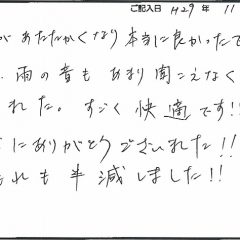 ご記入日 H29年 11
があたたかくなり本当に良かったで
雨の音もあまり聞こえなく
れた。すごく快適です!!
にありがとうございました!!
れも半減しました!!